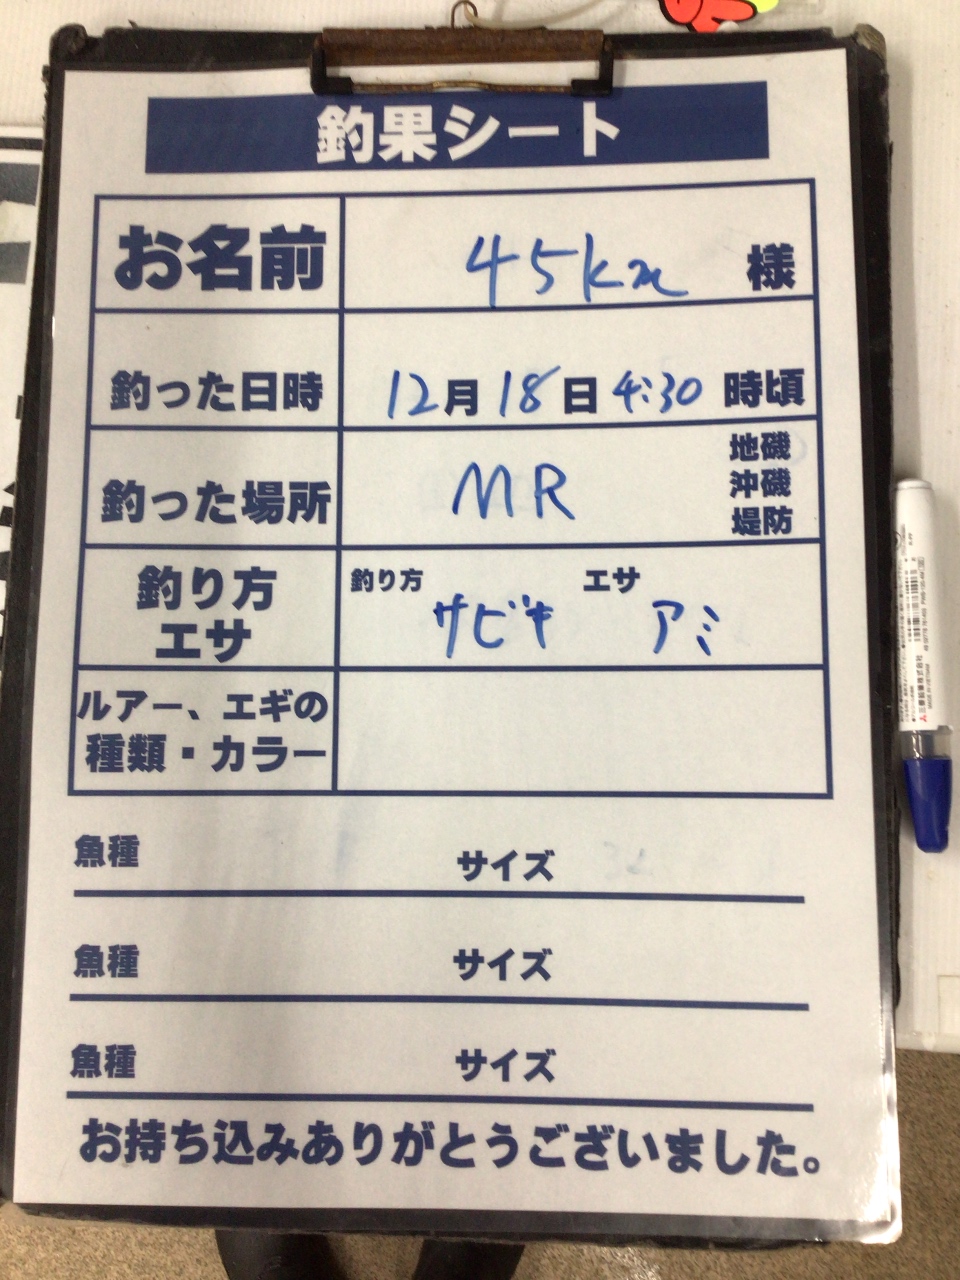 釣果シート
お名前 45km 様
釣った日時 12月18日 4:30 時頃
釣った場所 MR 地磯 沖磯 堤防
釣り方 エサ
釣り方 サビキ エサ アミ
ルアー、エギの
種類・カラー
魚種 サイズ
魚種 サイズ
魚種 サイズ
お持ち込みありがとうございました。